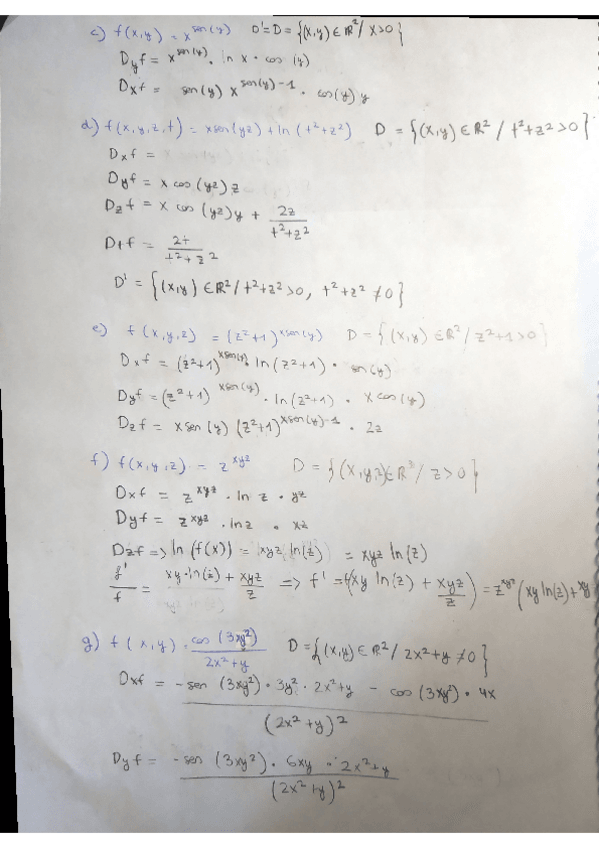 c) f(x,y) = x^sen(y) D'=D = {(x,y) ∈ ℝ² / x>0}
Dyf = x^sen(y) · ln x · cos (y)
Dxf = sen(y) x^sen(y)-1 · cos(y) y
d) f(x,y,z,t) = x sen(yz) + ln (t²+z²) D = {(x,y) ∈ ℝ² / t²+z²>0}
Dxf =
Dyf = x cos (yz) z
Dzf = x cos (yz) y + 2z/(t²+z²)
Dtf = 2t/(t²+z²)
D' = {(x,y) ∈ ℝ² / t²+z²>0, t²+z² ≠ 0}
e) f(x,y,z) = (z²+1)^xsen(y) D = {(x,y) ∈ ℝ² / z²+1>0}
Dxf = (z²+1)^xsen(y) · ln(z²+1) · sen(y)
Dyf = (z²+1)^xsen(y) · ln(z²+1) · x cos(y)
Dzf = x sen (y) (z²+1)^xsen(y)-1 · 2z
f) f(x,y,z) = z^xyz D = {(x,y,z) ∈ ℝ³ / z>0}
Dxf = z^xyz · ln z · yz
Dyf = z^xyz · ln z · xz
Dzf => ln (f(x)) = xyz ln(z) = xyz ln(z)
f'/f = xy·ln(z) + xyz/z => f' = f(xy ln(z) + xyz/z) = z^xyz (xy ln(z) + xy
g) f(x,y) = cos (3xy²)/2x²+y D = {(x,y) ∈ ℝ² / 2x²+y ≠ 0}
Dxf = -sen (3xy²) · 3y² · 2x²+y - cos (3xy²) · 4x
(2x²+y)²
Dyf = -sen (3xy²) · 6xy · 2x²+y
(2x²+y)²